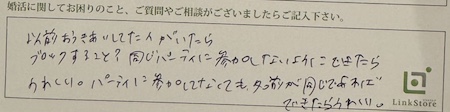 婚活に関してお困りのこと、ご質問やご相談がございましたらご記入下さい。
以前おつきあいしてた人がいたら
ブロックすること？同じパーティに参加しないようにできたら
うれしい。パーティに参加してなくても、名前が同じであれば
できたらうれしい。
LinkStore